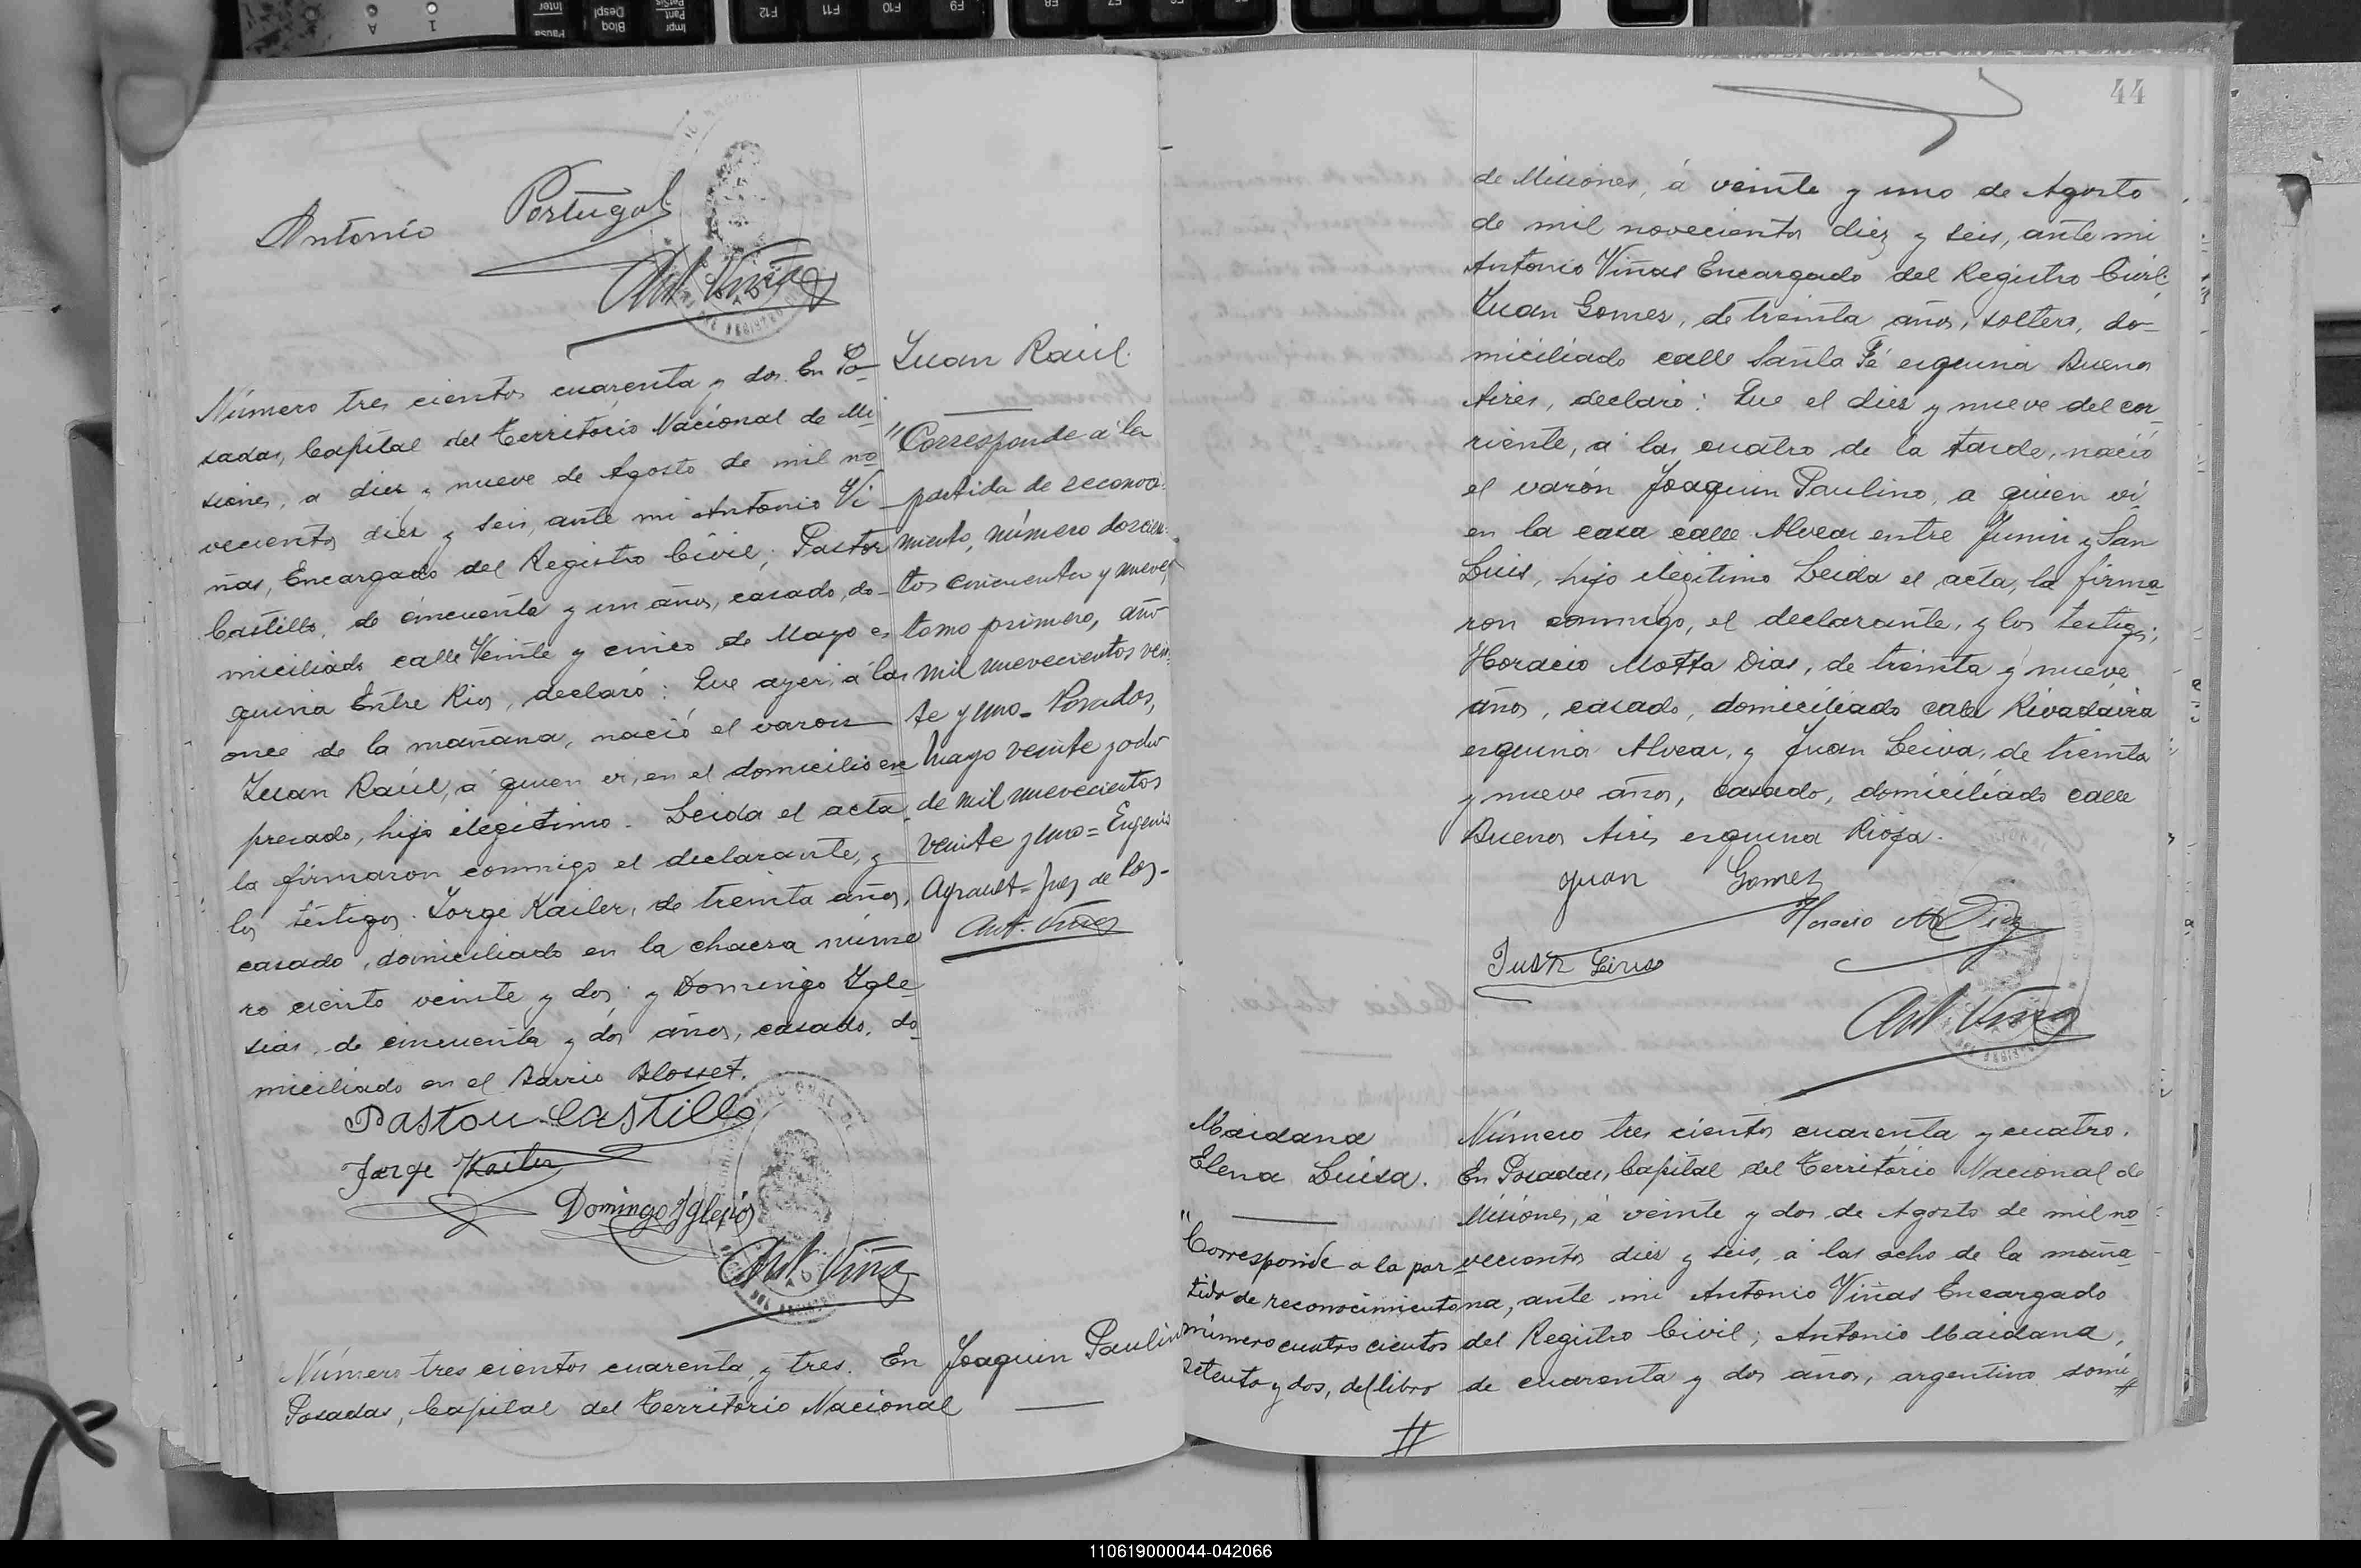 Antonio Portugal
Ant. Viñas
Número tres cientos cuarenta y dos. En Po-
sadas, Capital del Territorio Nacional de Mi
siones, a diez y nueve de Agosto de mil no
vecientos diez y seis, ante mi Antonio Vi
ñas, Encargado del Registro Civil, Pastor
Castillo, de cincuenta y un años, casado, do-
miciliado calle Veinte y cinco de Mayo es
quina Entre Rios, declaró: Que ayer, á las
once de la mañana, nació el varon
Juan Raúl, á quien vi, en el domicilio ex
presado, hijo ilegitimo. Leida el acta,
la firmaron conmigo el declarante, y
los testigos. Jorge Kailer, de treinta años,
casado, domiciliado en la chacra núme
ro ciento veinte y dos y Domingo Igle
sias, de cincuenta y dos años, casado, do
miciliado en el Barrio Blosset.
Pastor Castillo
Jorge Kailer
Domingo Iglesias
Ant. Viñas
Juan Raúl.
"Corresponde á la
partida de reconoci-
miento, número doscien-
tos cincuenta y nueve,
tomo primero, año
mil nuevecientos vein-
te y uno - Posadas,
Mayo veinte y ocho
de mil nuevecientos
veinte y uno = Eugenio
= Juez de Paz -
Ant. Viñas
Número tres cientos cuarenta y tres. En
Posadas, Capital del Territorio Nacional
Joaquin Paulino
44
de Misiones, á veinte y uno de Agosto
de mil novecientos diez y seis, ante mi
Antonio Viñas Encargado del Registro Civil,
Juan Gomez, de treinta años, soltero, do-
miciliado calle Santa Fé esquina Buenos
Aires, declaró: Que el diez y nueve del cor
riente, á las cuatro de la tarde, nació
el varón Joaquin Paulino, a quien vi
en la casa calle Alvear entre Junin y San
Luis, hijo ilegitimo Leida el acta, la firma
ron conmigo, el declarante, y los testigos;
Horacio Motta Dias, de treinta y nueve
años, casado, domiciliado calle Rivadavia
esquina Alvear, y Juan Leiva, de treinta
y nueve años, casado, domiciliado calle
Buenos Aires esquina Rioja.
Juan Gomez
Horacio M Diaz
Juan Leiva
Ant. Viñas
Maidana
Elena Luisa.
"Corresponde a la par
tida de reconocimiento
número cuatro cientos
setenta y dos, del libro
#
Número tres cientos cuarenta y cuatro.
En Posadas, Capital del Territorio Nacional de
Misiones, á veinte y dos de Agosto de mil no
vecientos diez y seis, á las ocho de la maña
na, ante mi Antonio Viñas Encargado
del Registro Civil; Antonio Maidana,
de cuarenta y dos años, argentino domi
#
110619000044-042066